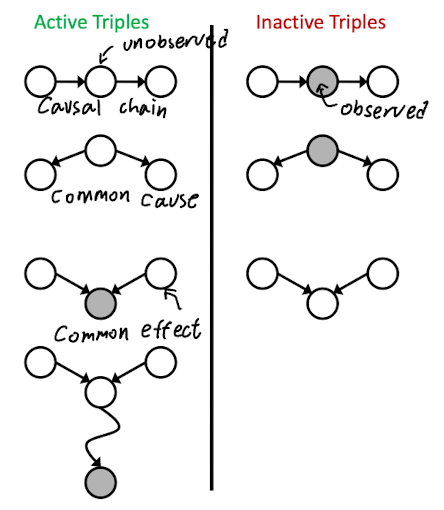 Active Triples
unobserved
Causal chain
Common Cause
Common effect
Inactive Triples
observed